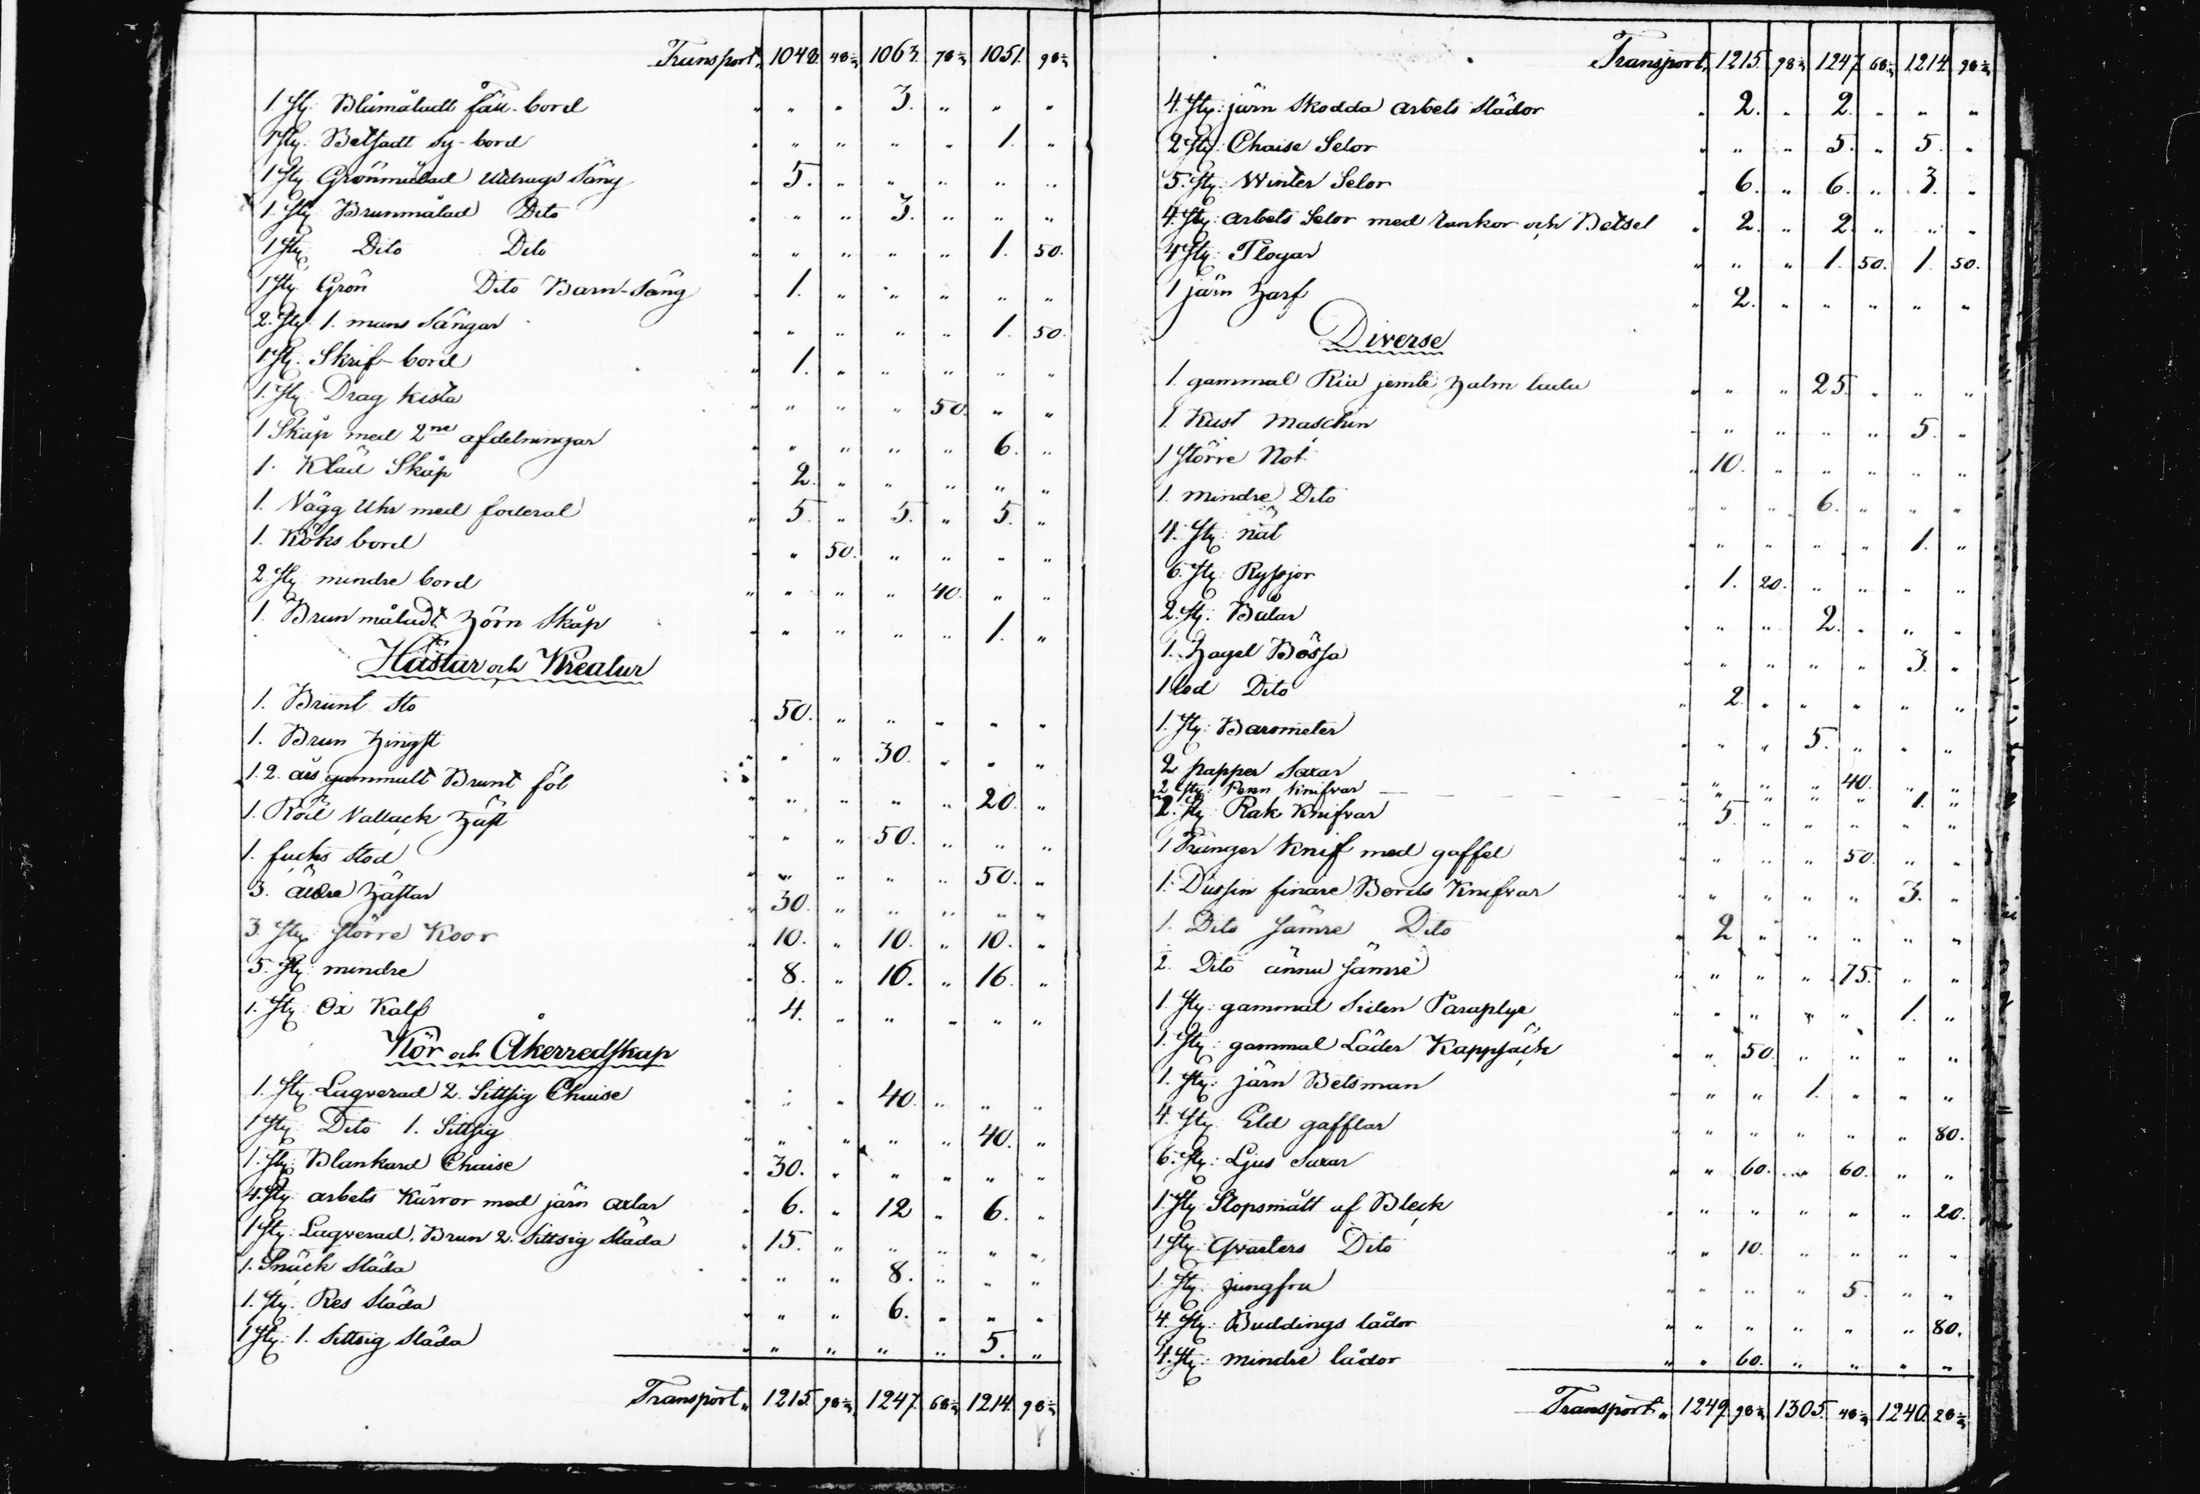 Transport „ 1048. 48 2/3 1063. 78 2/3 1051. 98 2/3
1 sty: Blåmåladt fäll-bord „ „ „ 3. „ „ „
1 sty: Betsadt sy-bord „ „ „ „ „ 1. „
1 sty Grönmålad Utdrags Säng „ 5. „ „ „ „ „
1. sty Brunmålad Dito „ „ „ 3. „ „ „
1 sty Dito Dito „ „ „ „ „ 1. 50.
1 sty Grön Dito Barn-Säng „ 1. „ „ „ „ „
2. sty. 1. mans Sängar „ „ „ „ „ 1. 50.
1 st. Skrif-bord „ 1. „ „ „ „ „
1. sty Drag kista „ „ „ „ 50. „ „
1 Skåp med 2ne afdelningar „ „ „ „ „ 6. „
1. Kläd Skåp „ 2. „ „ „ „ „
1. Vägg Uhr med foderal „ 5. „ 5. „ 5. „
1. Köks bord „ „ 50. „ „ „ „
2. sty mindre bord „ „ „ „ 40. „ „
1. Brun måladt Hörn Skåp „ „ „ „ „ 1. „
Hästar och Kreatur
1. Brunt Sto „ 50. „ „ „ „ „
1. Brun Hingst „ „ „ 30. „ „ „
1. 2. års gammalt Brunt föl „ „ „ „ „ 20. „
1. Röd Vallack Häst „ „ „ 50. „ „ „
1. fuchs Stod „ „ „ „ „ 50. „
3. äldre Hästar „ 30. „ „ „ „ „
3. sty större Koor „ 10. „ 10. „ 10. „
5. sty mindre „ 8. „ 16. „ 16. „
1. sty Ox Kalf „ 4. „ „ „ „ „
Kör och Åkerredskap
1. sty Lagverad 2. Sittsig Chaise „ „ „ 40. „ „ „
1 sty Dito 1. Sittsig „ „ „ „ „ 40. „
1. sty. Blankard Chaise „ 30. „ „ „ „ „
4. sty arbets Kärror med järn axlar „ 6. „ 12 „ 6. „
1 sty: Lagverad, Brun 2. Sittsig Släda „ 15. „ „ „ „ „
1. Snäck Släda „ „ „ 8. „ „ „
1. sty. Res Släda „ „ „ 6. „ „ „
1 sty: 1. Sittsig Släda „ „ „ „ „ 5. „
Transport „ 1215. 98 2/3 1247. 68 2/3 1214. 98 2/3
Transport „ 1215. 98 2/3 1247. 68 2/3 1214. 98 2/3
4. sty: järn skodda arbets Slädor „ 2. „ 2. „ „ „
2 sty: Chaise Selor „ „ „ 5. „ 5. „
5. sty: Winter Selor „ 6. „ 6. „ 3. „
4. sty: arbets Selor med rankor och Betsel „ 2. „ 2. „ „ „
4 sty: Plogar „ „ „ 1. 50. 1. 50.
1 järn Harf „ 2. „ „ „ „ „
Diverse
1. gammal Ria jemte Halm lada „ „ „ 25. „ „ „
1. Kast Maschin „ „ „ „ „ 5. „
1 större Not „ 10. „ „ „ „ „
1. mindre Dito „ „ „ 6. „ „ „
4. sty: nät „ „ „ „ „ 1. „
6. sty: Ryssjor „ 1. 20. „ „ „ „
2. sty: Båtar „ „ „ 2. „ „ „
1. Hagel Bössa „ „ „ „ „ 3. „
1 lod Dito „ 2. „ „ „ „ „
1. sty: Barometer „ „ „ 5. „ „ „
2 papper Saxar „ „ „ „ 40. „ „
2 sty: Penn Knifvar „ „ „ „ „ 1. „
2. sty Rak Knifvar „ 5. „ „ „ „ „
1 Tranger Knif med gaffel „ „ „ „ 50. „ „
1. Dussin finare Bords Knifvar „ „ „ „ „ 3. „
1. Dito sämre Dito „ 2 „ „ „ „ „
2. Dito ännu sämre „ „ „ „ 75. „ „
1. sty: gammal Siden Paraplye „ „ „ „ „ 1. „
1. sty: gammal Läder Kappsäck „ „ 50. „ „ „ „
1. sty: järn Betsman „ „ „ 1. „ „ „
4. sty Eld gafflar „ „ „ „ „ „ 80.
6. sty: Ljus Saxar „ „ 60. „ 60. „ „
1. sty Stopsmått af Bleck „ „ „ „ „ „ 20.
1 sty: Qvarters Dito „ „ 10. „ „ „ „
1. sty: jungfru „ „ „ „ 5. „ „
4. sty: Buddings lådor „ „ „ „ „ „ 80.
4. sty: mindre lådor „ „ 60. „ „ „ „
Transport „ 1249. 98 2/3 1305. 48 2/3 1240. 28 2/3